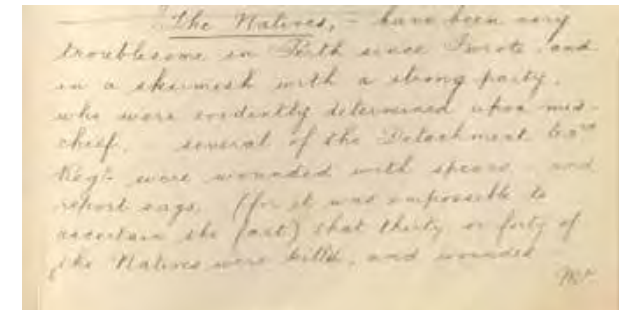 The Natives, - have been very
troublesome in Perth since I wrote, and
in a skirmish with a strong party,
who were evidently determined upon mis-
chief, several of the Detachment 63rd
Regt were wounded with spears, and
report says, (for it was impossible to
ascertain the fact) that thirty or forty of
the Natives were killd, and wounded
Mr